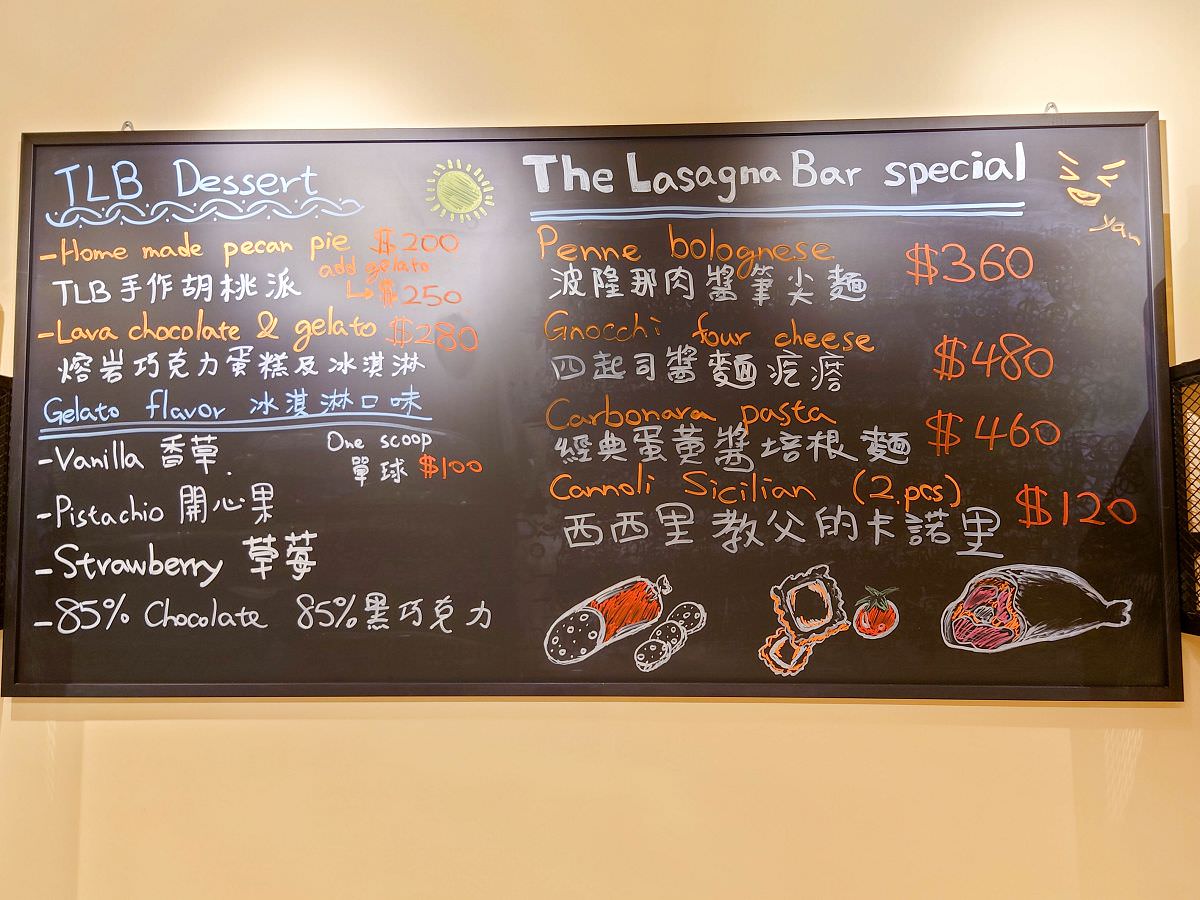 TLB Dessert
-Home made pecan pie $200
add gelato
TLB手作胡桃派 ↳$250
-Lava chocolate & gelato $280
熔岩巧克力蛋糕及冰淇淋
Gelato flavor 冰淇淋口味
-Vanilla 香草.
One scoop
單球 $100
-Pistachio 開心果
-Strawberry 草莓
-85% Chocolate 85%黑巧克力
The Lasagna Bar special
yan
Penne bolognese $360
波隆那肉醬筆尖麵
Gnocchi four cheese $480
四起司醬麵疙瘩
Carbonara pasta $460
經典蛋黃醬培根麵
Cannoli Sicilian (2.pcs) $120
西西里教父的卡諾里